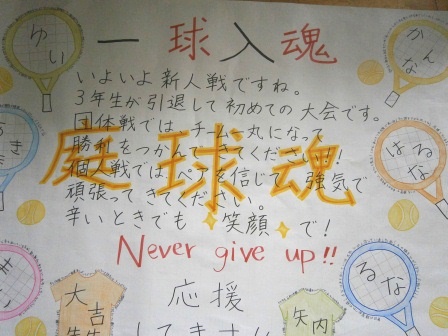 一球入魂
ゆい
かんな
いよいよ新人戦ですね。
3年生が引退して初めての大会です。
団体戦では、チーム一丸になって
勝利をつかんできてください!!
個人戦では、ペアを信じて、強気で
頑張ってきてください。
辛いときでも笑顔で!
庭球魂
はるな
Never give up!!
るな
応援
大吉
矢内